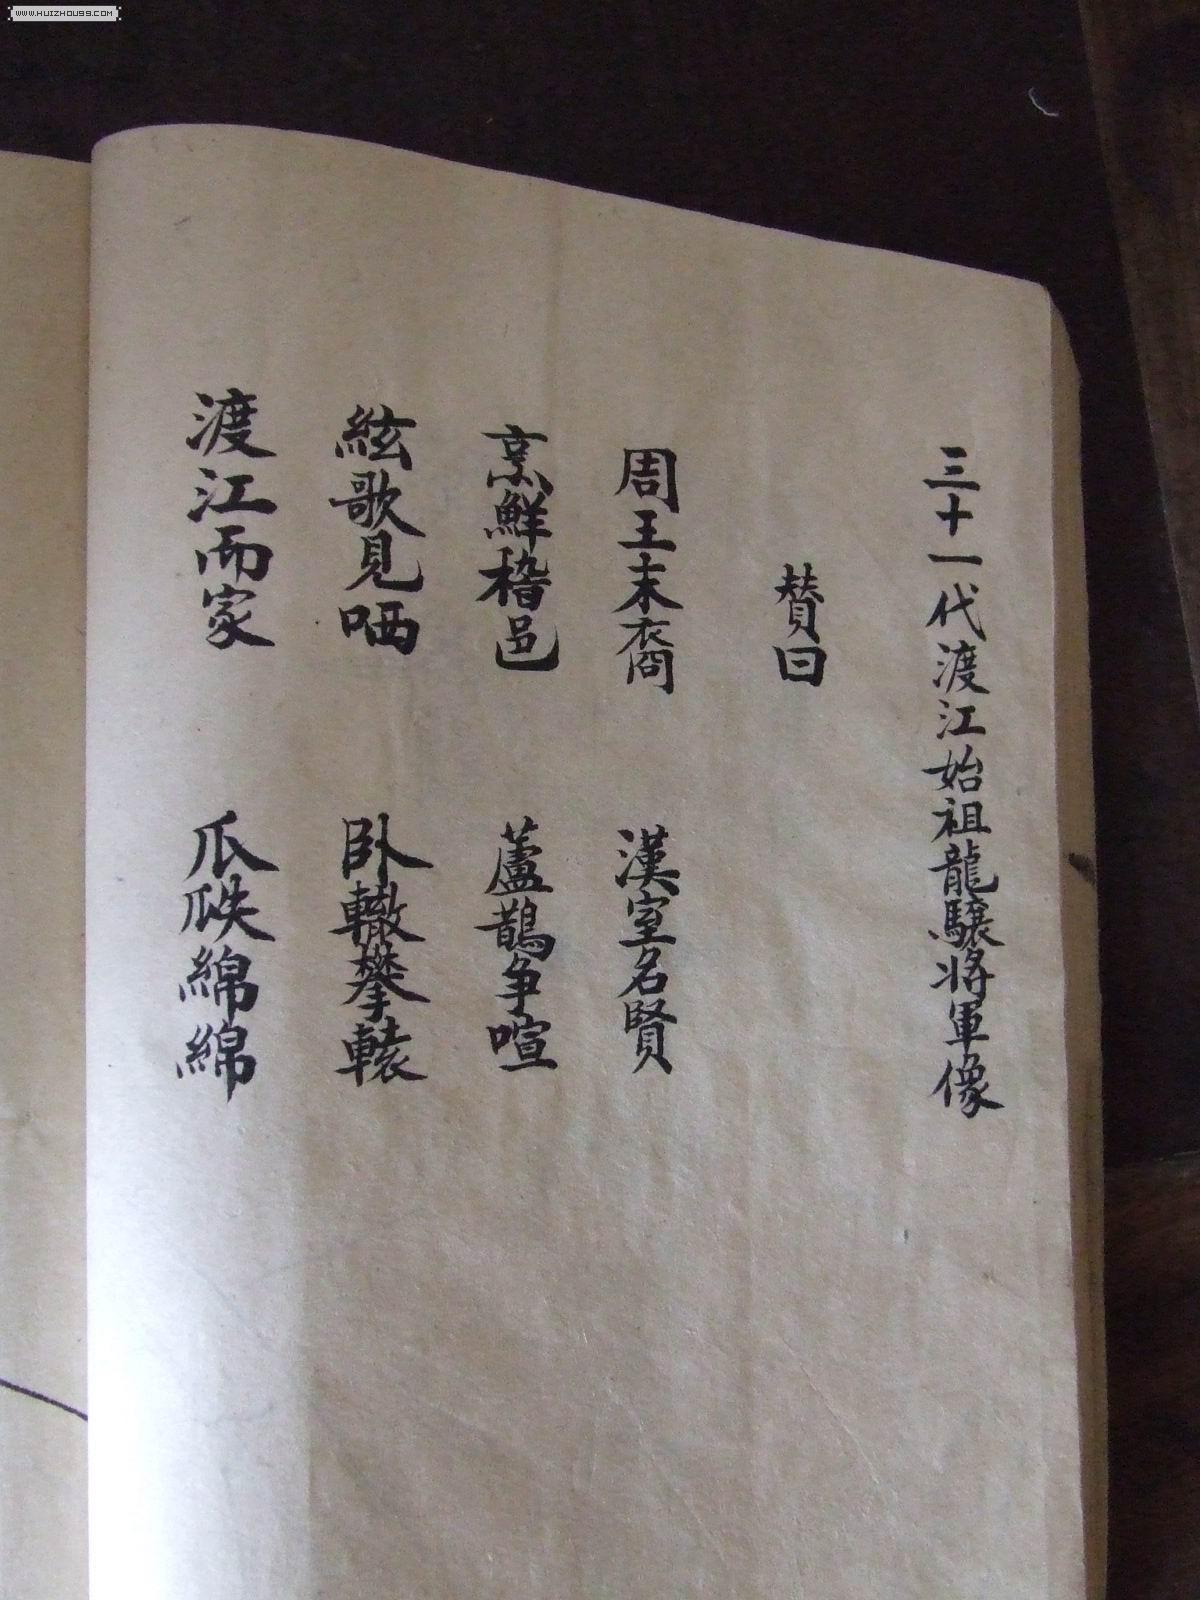 WWW.HUIZHOU99.COM
三十一代渡江始祖龍驤將軍像
贊曰
周王末裔 漢室名賢
烹鮮稽邑 蘆鵲争喧
絃歌見哂 卧轍攀轅
渡江而家 瓜瓞綿綿